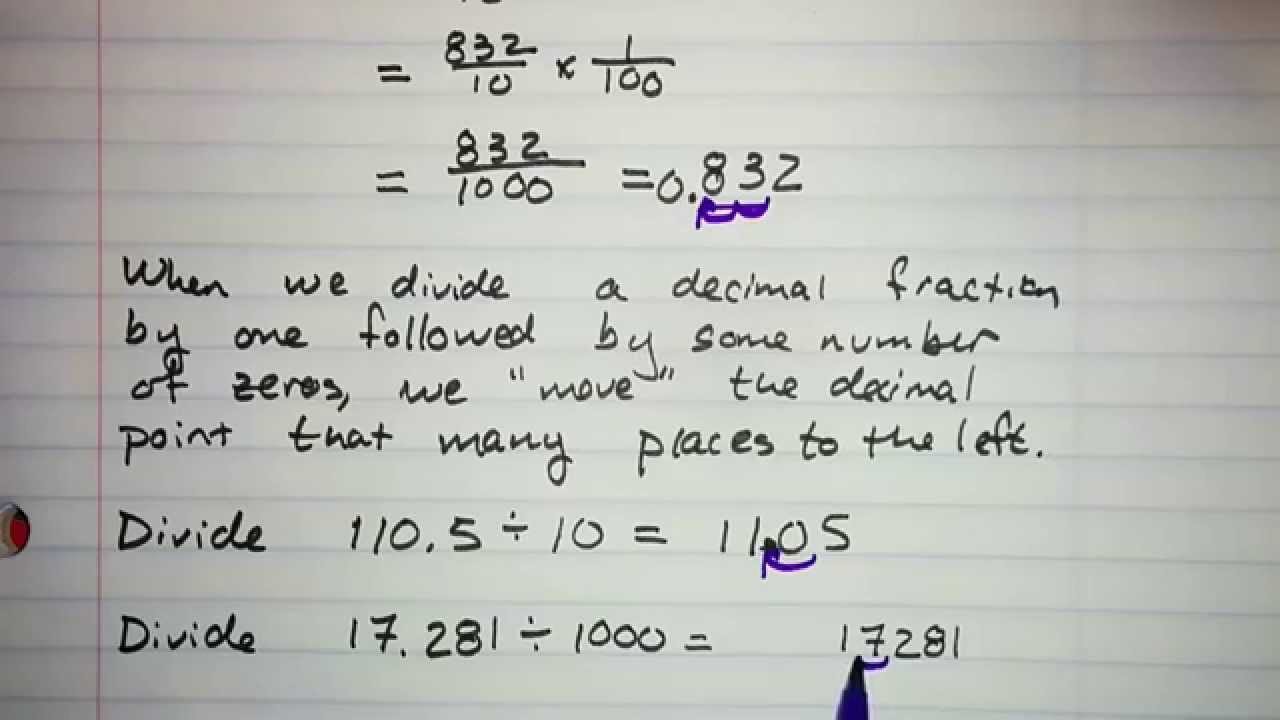 = 832/10 × 1/100
= 832/1000 = 0.832
When we divide a decimal fraction
by one followed by some number
of zeros, we "move" the decimal
point that many places to the left.
Divide 110.5 ÷ 10 = 11.05
Divide 17.281 ÷ 1000 = 17281